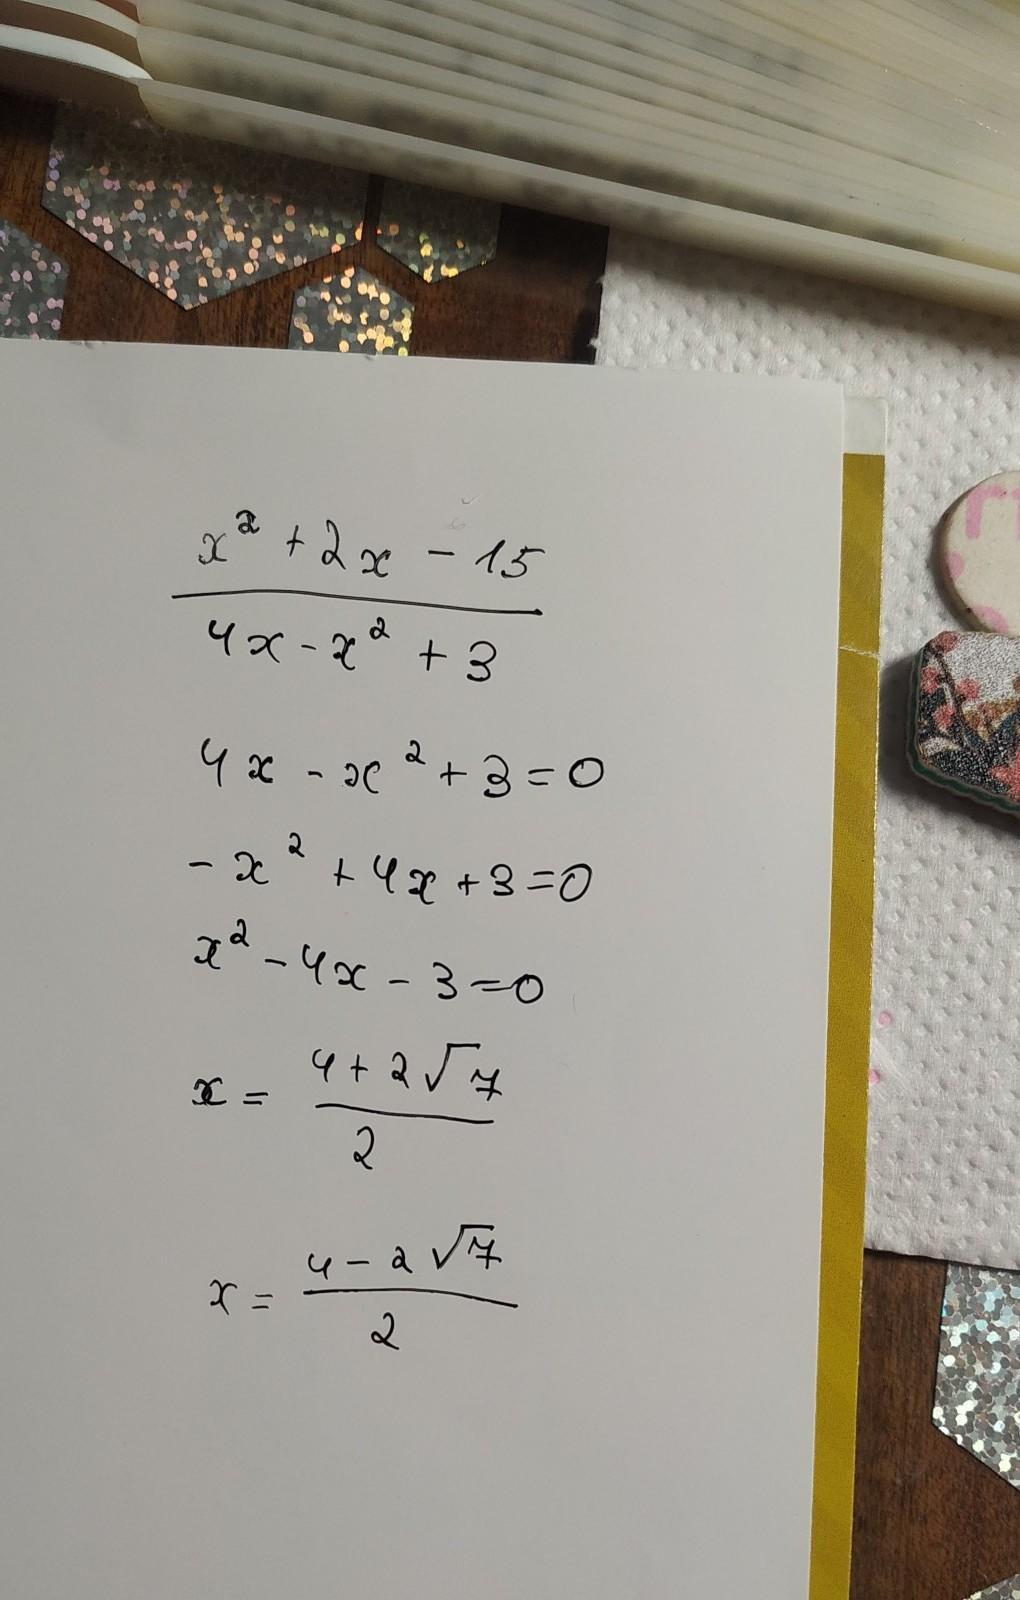 x² + 2x - 15
4x - x² + 3
4x - x² + 3 = 0
- x² + 4x + 3 = 0
x² - 4x - 3 = 0
x = (4 + 2√7)/2
x = (4 - 2√7)/2